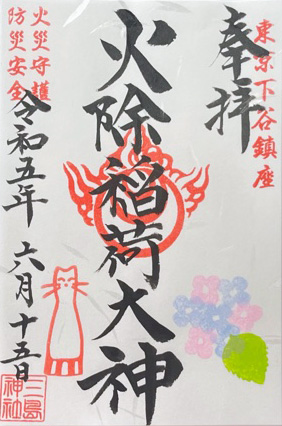 東京下谷鎮座
奉拝
火除稲荷大神
火災守護
防災安全
令和五年 六月十五日
三島神社